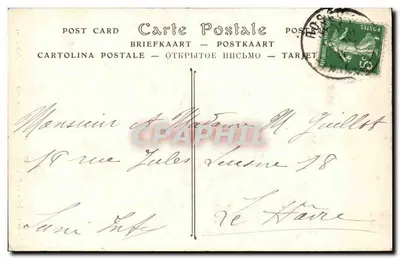 POST CARD Carte Postale POS
BRIEFKAART — POSTKAART
CARTOLINA POSTALE — ОТКРЫТОЕ ПИСЬМО — TARJET
POSTES
CPAPHIL
Monsieur & Madame M. Guillot
18 rue Jules Lecesne 18
Le Hâvre